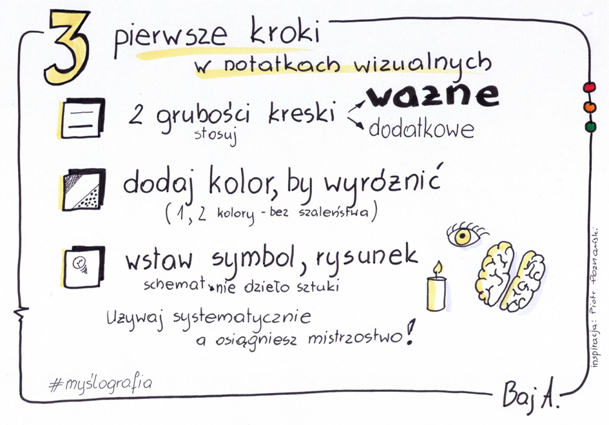 3 pierwsze kroki
w notatkach wizualnych
2 grubości kreski
stosuj
ważne
dodatkowe
dodaj kolor, by wyróżnić
(1, 2 kolory - bez szaleństwa)
wstaw symbol, rysunek
schemat, nie dzieło sztuki
Używaj systematycznie
a osiągniesz mistrzostwo!
#myślografia
Baj A.
inspiracja: Piotr Poznański